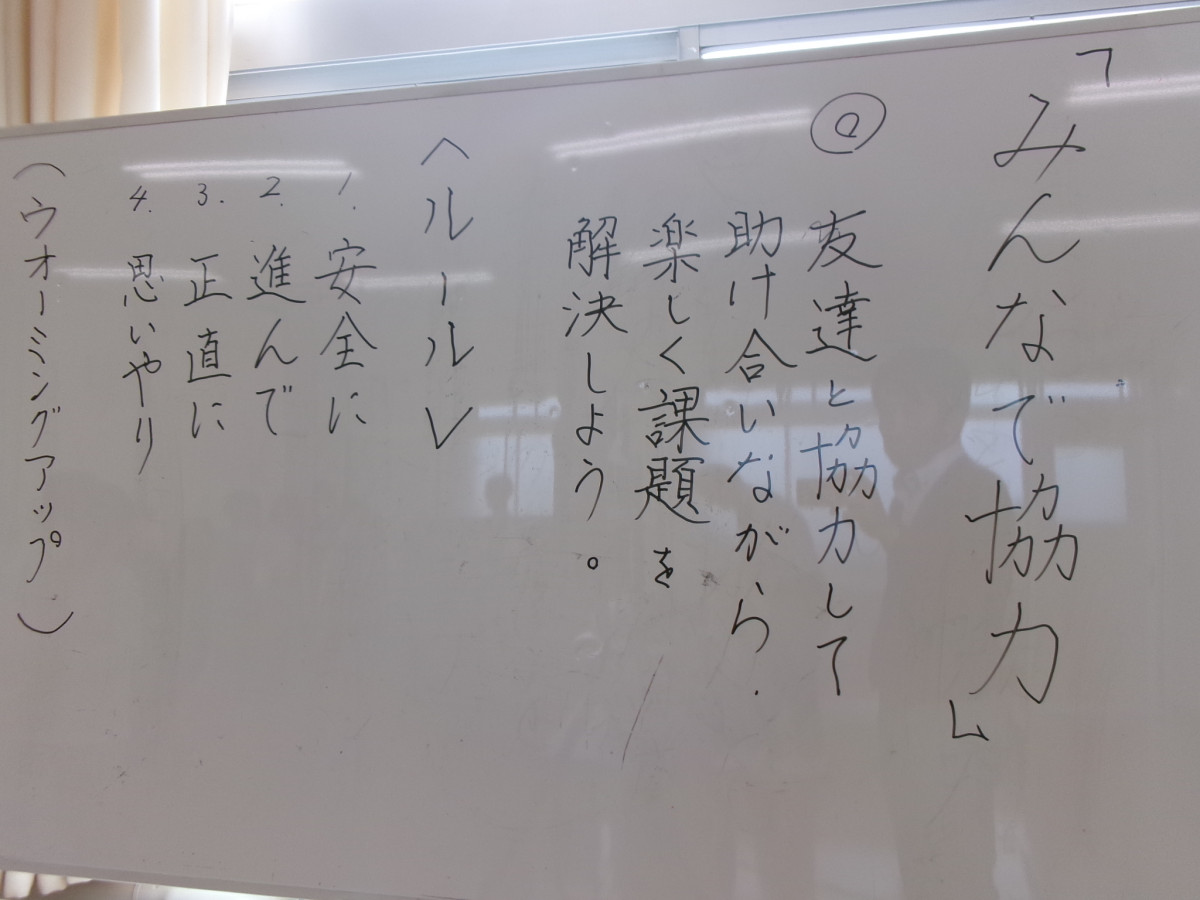 「みんなで協力」
◎ 友達と協力して
助け合いながら
楽しく課題を
解決しよう。
〈ルール〉
1. 安全に
2. 進んで
3. 正直に
4. 思いやり
(ウオーミングアップ)